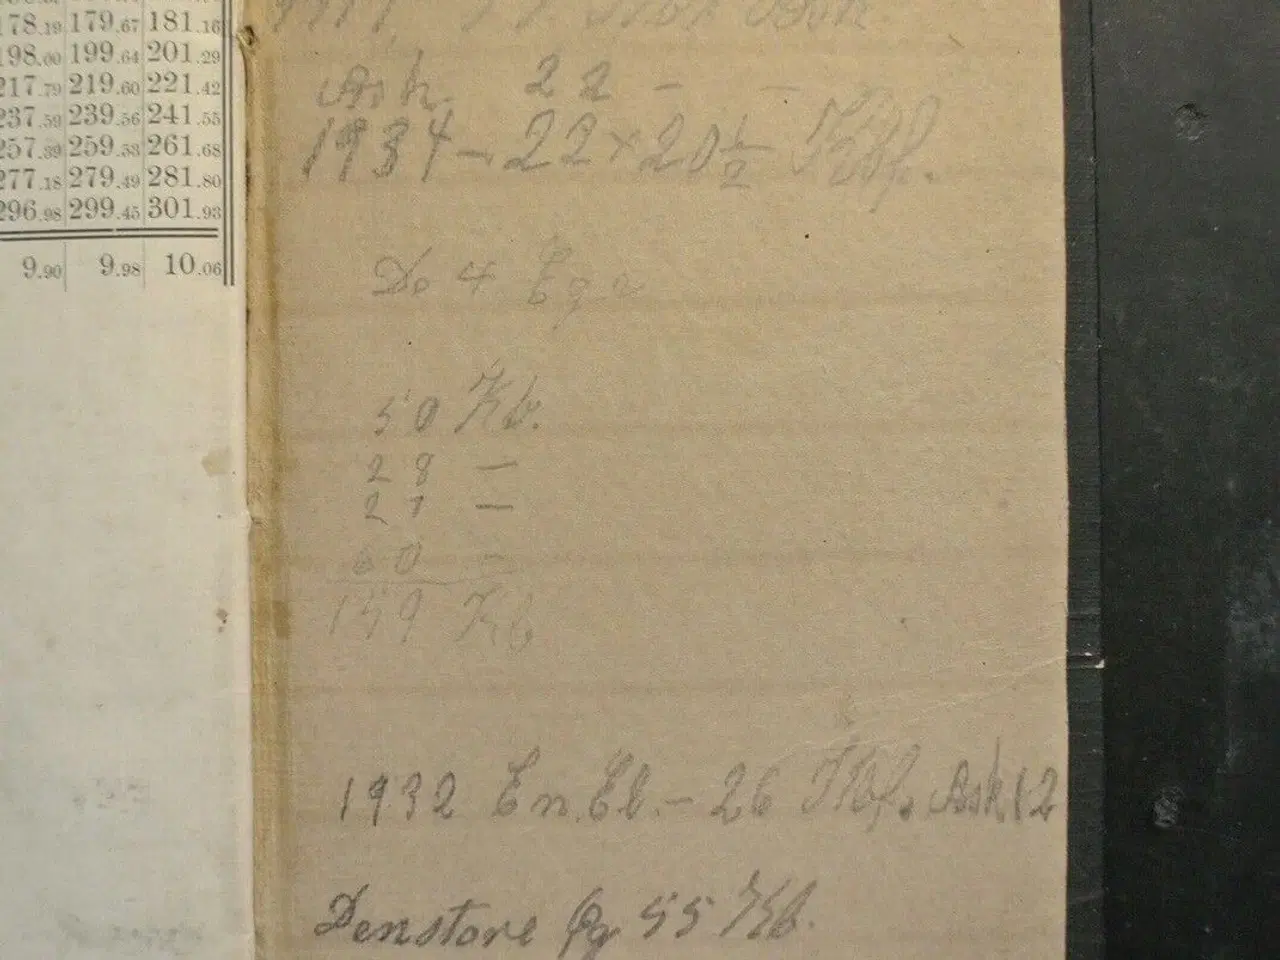 178.19 179.67 181.16
198.00 199.64 201.29
217.79 219.60 221.42
237.59 239.56 241.55
257.39 259.53 261.68
277.18 279.49 281.80
296.98 299.45 301.93
9.90 9.98 10.06
Ask. 22 — —
1934 – 22 × 20 1/2 Kbf.
De 4 Egr
50 Kb.
28 —
21 —
60 —
159 Kb
1932 En. Eb. – 26 Kbf. Ask 12
Denstore Eg 55 Kb.